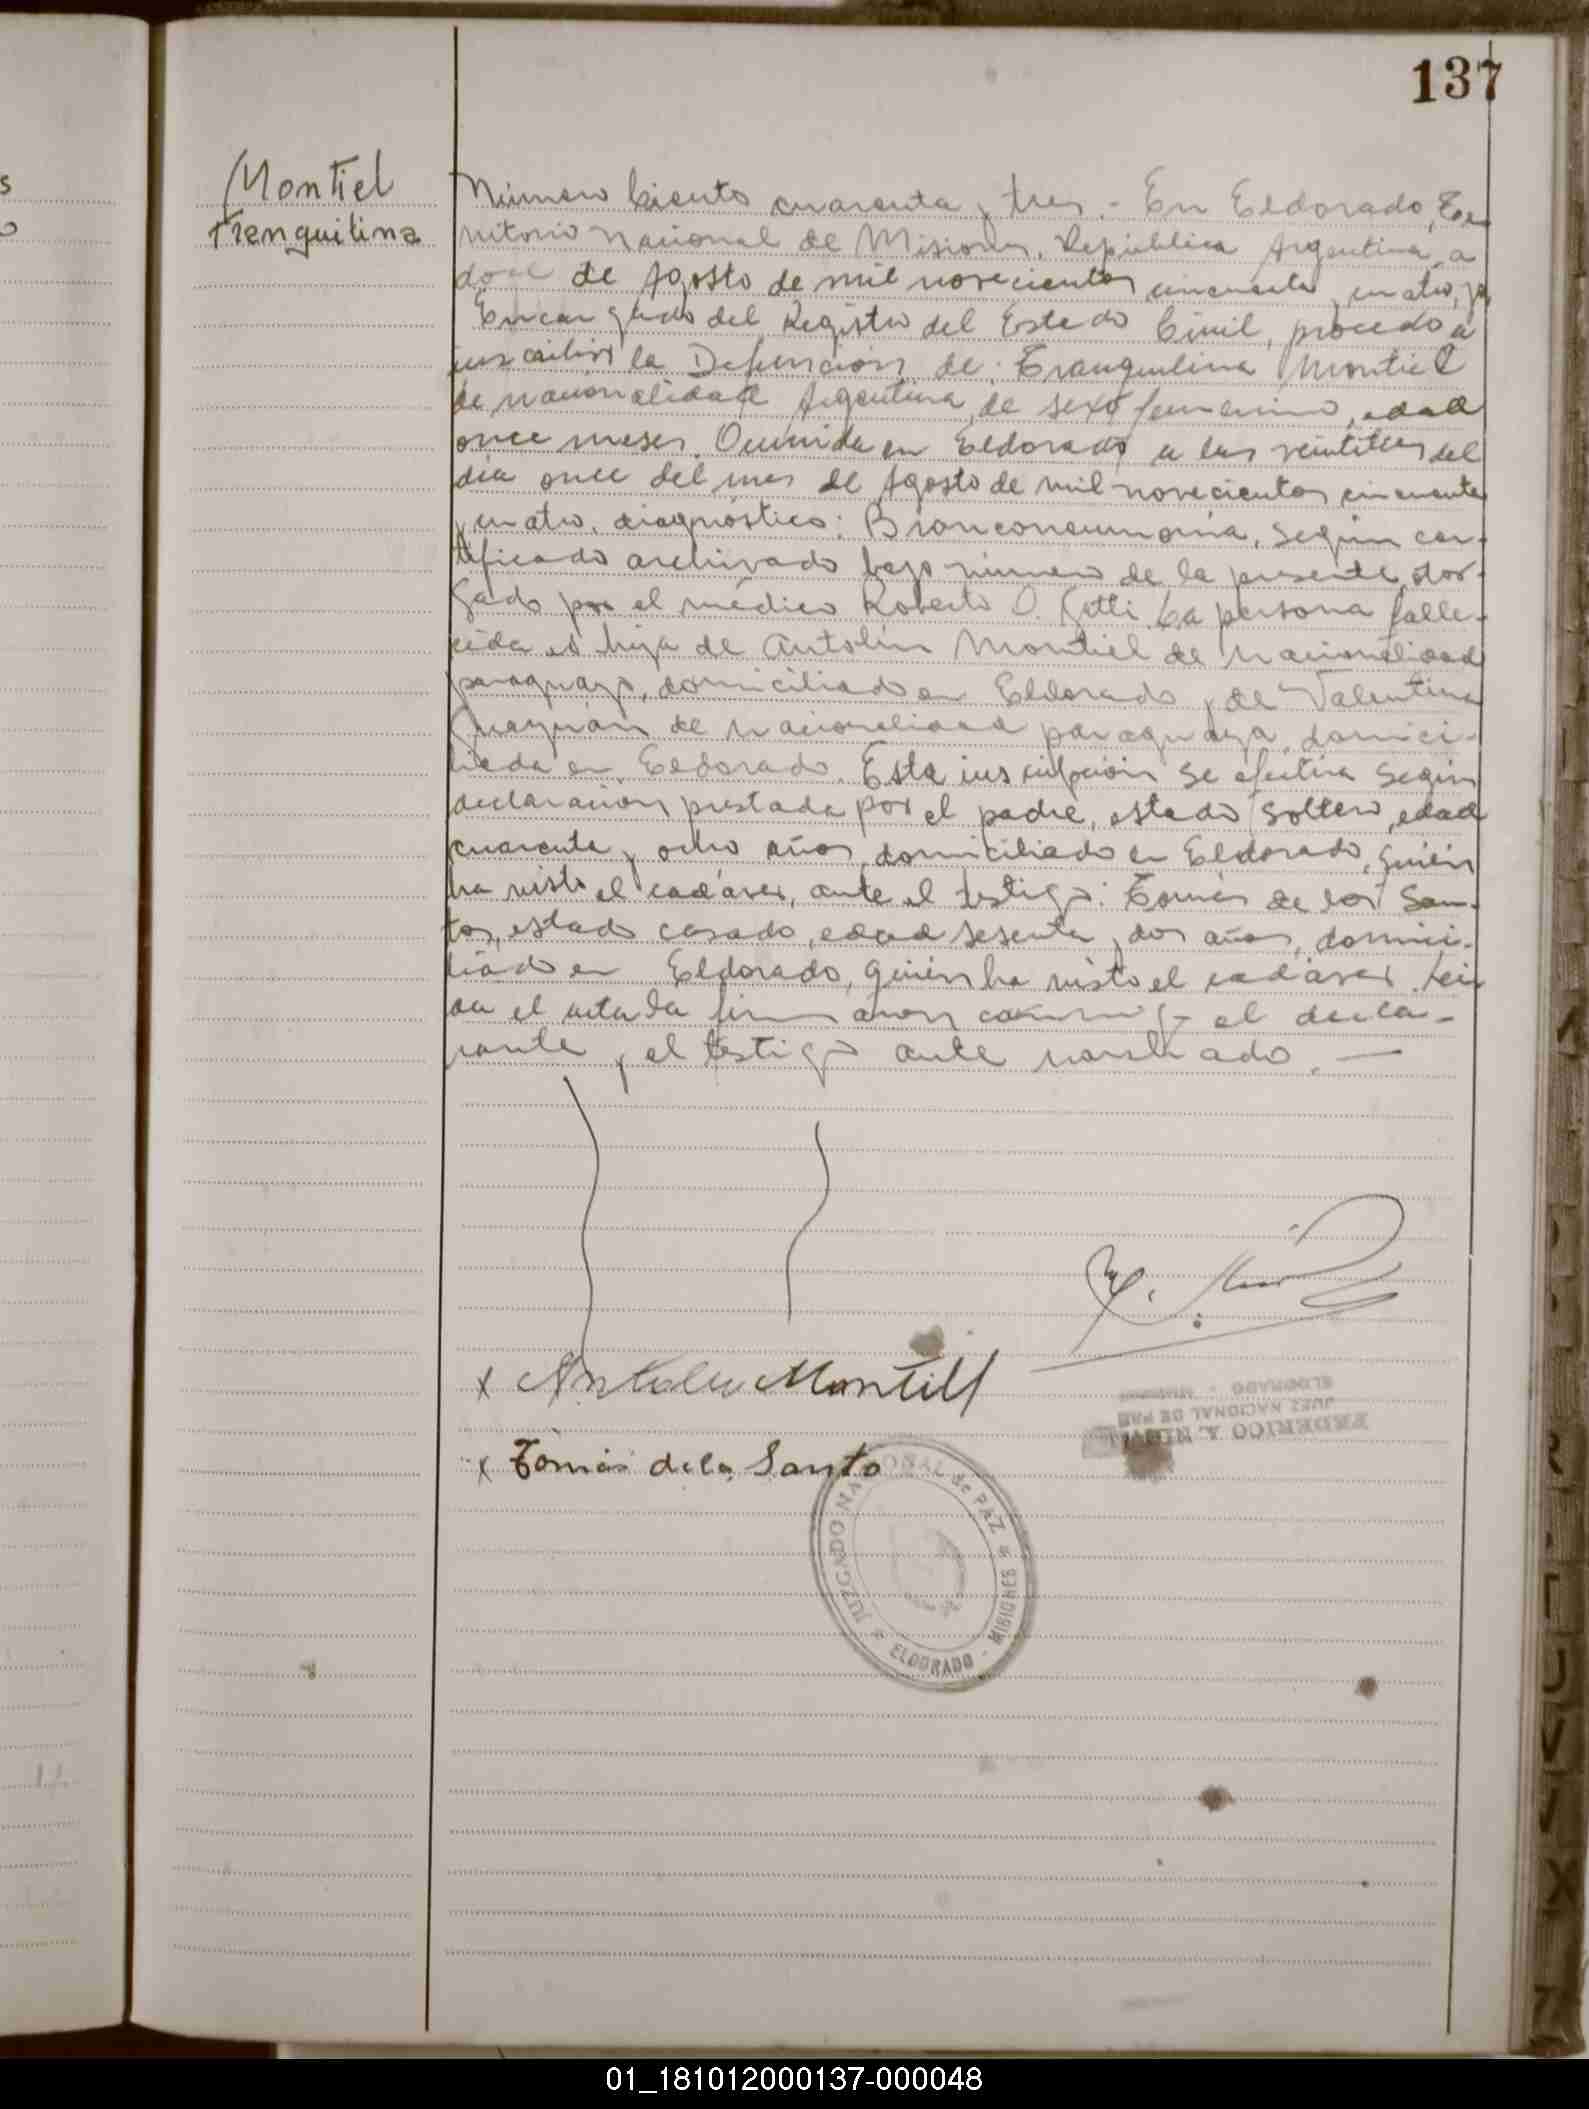 137
Montiel
Trenquilina
Número Ciento cuarenta y tres.- En Eldorado, Te-
rritorio Nacional de Misiones, República Argentina, a
doce de Agosto de mil novecientos cincuenta y cuatro, yo
Encargado del Registro del Estado Civil, procedo a
inscribir la Defunción de: Tranquilina Montiel
de nacionalidad Argentina, de sexo femenino, edad
once meses. Ocurrida en Eldorado a las veintitres del
día once del mes de Agosto de mil novecientos cincuenta
y cuatro, diagnóstico: Bronconeumonia, según cer-
tificado archivado bajo número de la presente, otor-
gado por el médico Roberto O. Gatti. La persona falle-
cida es hija de Antolín Montiel de nacionalidad
paraguayo, domiciliado en Eldorado y de Valentina
de nacionalidad paraguaya, domici-
liada en Eldorado. Esta inscripción se efectúa según
declaración prestada por el padre, estado soltero, edad
cuarenta y ocho años, domiciliado en Eldorado, quién
ha visto el cadáver, ante el testigo: Tomás de los San-
tos, estado casado, edad sesenta y dos años, domici-
liado en Eldorado, quién ha visto el cadáver. Leí-
da el acta la firmaron conmigo el decla-
rante y el testigo ante nombrado.—
x Antolin Montiell
x Tomás de los Santo
ELDORADO - MISIONES
JUEZ NACIONAL DE PAZ
FEDERICO A.
JUZGADO NACIONAL de PAZ
ELDORADO - MISIONES
01_181012000137-000048